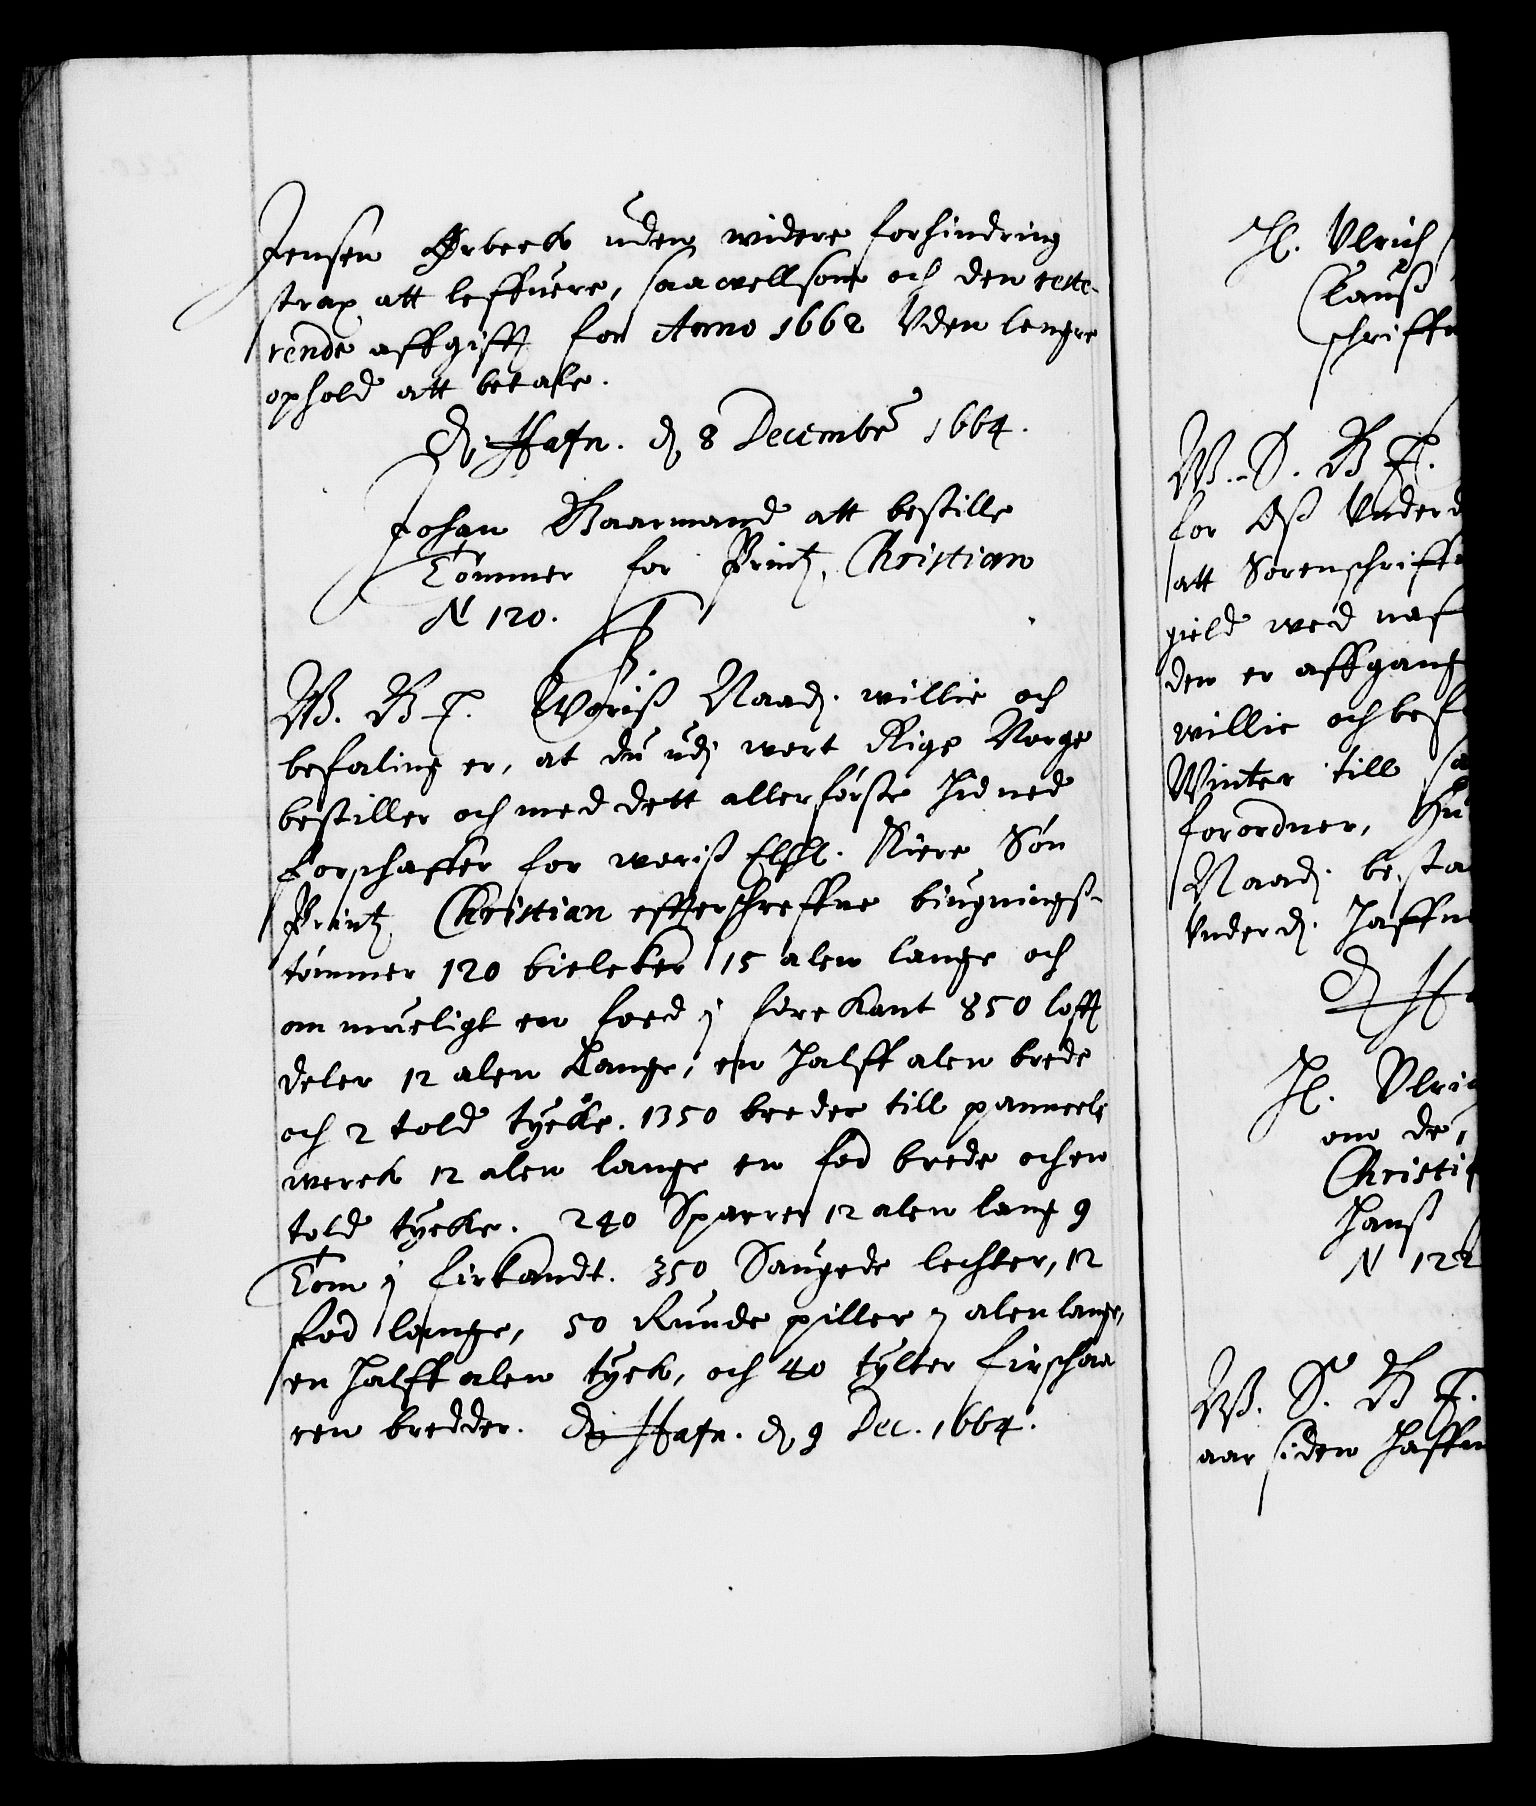 Jensen Ørbeck uden widere forhindring
strax att leffuere, saa wellsom och den reste-
rende affgifft for Anno 1662 Uden lengre
ophold att betale.
Hafn. d 8 Decembr 1664.
Johan Gaarmand att bestille
Tømmer for Printz Christian
N 120.
W. G. T. Woriß Naad. willie och
befaling er, at du udj wort Rige Norge
bestiller och med dett allerførste hid ned
forschaffer for woriß Elschl. Kiere Søn
Printz Christian effterschreffne biugningß-
tømmer 120 bielcker 15 alen lange och
om mueligt en foed j firekant 850 lofft
deler 12 alen Lange, en halff alen brede
och 2 told tycke. 1350 breder till panneele
werck 12 alen lange en fod brede och en
told tycke. 240 Sparrer 12 alen lang 9
Tom j firkandt. 350 Saugede lechter, 12
fod lange, 50 Runde piller 7 alen lange,
en halff alen tyck, och 40 tylter firschaa
ren bredder. Hafn. d 9 Dec. 1664.
H. Ulrich
Clauß
schriffu
W. S. G T.
for Oß Underd
att Sorenschriffu
gield wed naf
den er affgang
willie och bef
Winter till sa
forordner, Hu
Naad. be sta
Underd. haffu
d H
H. Ulric
om de
Christi
Hanß
N 122
W. S. G T.
aar siden haffu